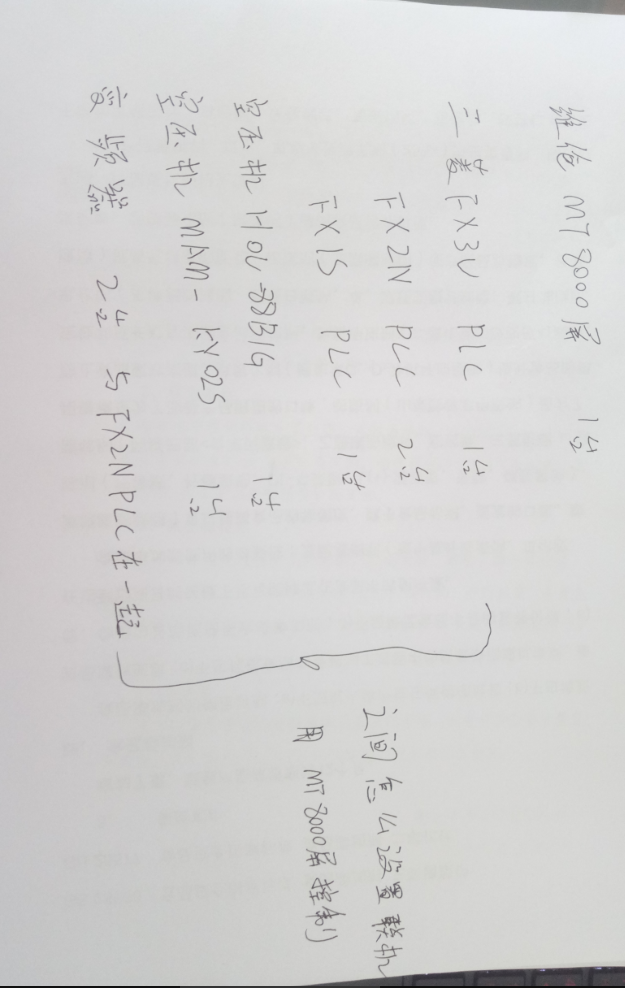 维伦 MT8000屏 1台
三菱 FX3U PLC 1台
FX2N PLC 2台
FX1S PLC 1台
空压机 HOL-88B1G 1台
空压机 MAM-KY02S 1台
变频器 2台 与FX2NPLC在一起
之间怎么设置联机
用 MT8000屏控制